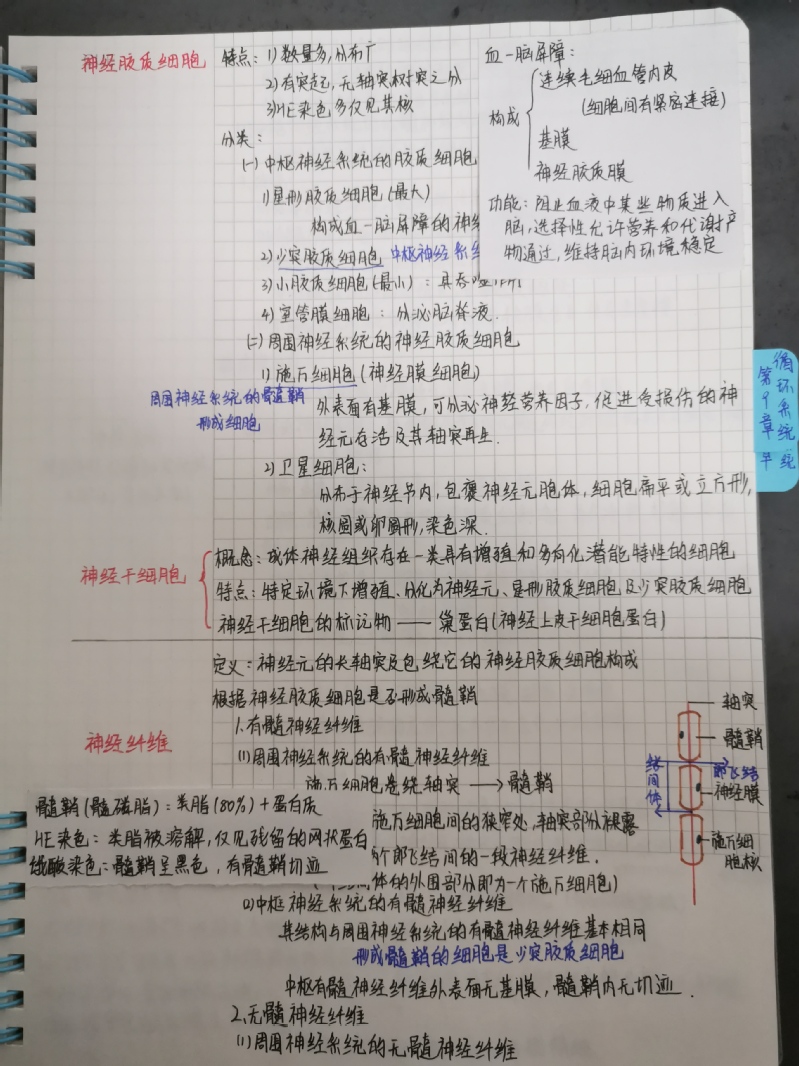 神经胶质细胞
特点：1）数量多，分布广
2）有突起，无轴突树突之分
3）HE染色多仅见其核
分类：
(一)中枢神经系统的胶质细胞
1）星形胶质细胞(最大)
构成血一脑屏障的神经
2）少突胶质细胞 中枢神经系统
3）小胶质细胞(最小)：具吞噬作用
4）室管膜细胞：分泌脑脊液.
(二)周围神经系统的神经胶质细胞
1）施万细胞(神经膜细胞)
周围神经系统的髓鞘
形成细胞
外表面有基膜，可分泌神经营养因子，促进受损伤的神
经元存活及其轴突再生.
2）卫星细胞：
分布于神经节内，包裹神经元胞体，细胞扁平或立方形，
核圆或卵圆形，染色深.
血一脑屏障：
构成
连续毛细血管内皮
(细胞间有紧密连接)
基膜
神经胶质膜
功能：阻止血液中某些物质进入
脑，选择性允许营养和代谢产
物通过，维持脑内环境稳定
循环系统
第9章
神经干细胞
概念：成体神经组织存在一类具有增殖和多向化潜能特性的细胞
特点：特定环境下增殖、分化为神经元、星形胶质细胞及少突胶质细胞
神经干细胞的标记物——巢蛋白(神经上皮干细胞蛋白)
神经纤维
定义：神经元的长轴突及包绕它的神经胶质细胞构成
根据神经胶质细胞是否形成髓鞘
1.有髓神经纤维
(1)周围神经系统的有髓神经纤维
施万细胞卷绕轴突 → 髓鞘
施万细胞间的狭窄处，轴突部分裸露
个郎飞结间的一段神经纤维.
体的外围部分即为一个施万细胞)
髓鞘(髓磷脂)：类脂(80%)+蛋白质
HE染色：类脂被溶解，仅见残留的网状蛋白
锇酸染色：髓鞘呈黑色，有髓鞘切迹
轴突
髓鞘
郎飞结
神经膜
结间体
施万细
胞核
(2)中枢神经系统的有髓神经纤维
其结构与周围神经系统的有髓神经纤维基本相同
形成髓鞘的细胞是少突胶质细胞
中枢有髓神经纤维外表面无基膜，髓鞘内无切迹.
2.无髓神经纤维
(1)周围神经系统的无髓神经纤维